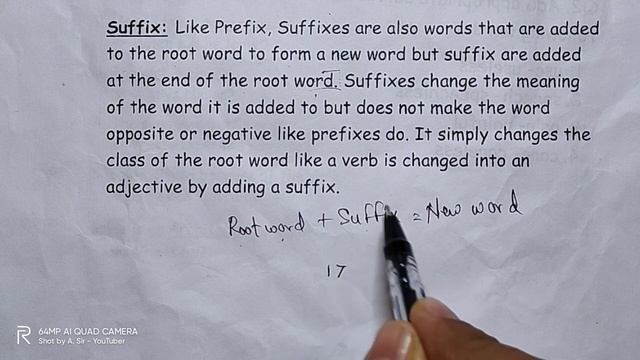 Suffix: Like Prefix, Suffixes are also words that are added
to the root word to form a new word but suffix are added
at the end of the root word. Suffixes change the meaning
of the word it is added to but does not make the word
opposite or negative like prefixes do. It simply changes the
class of the root word like a verb is changed into an
adjective by adding a suffix.
Root word + Suffix = New word
17
64MP AI QUAD CAMERA
Shot by A. Sir - YouTuber